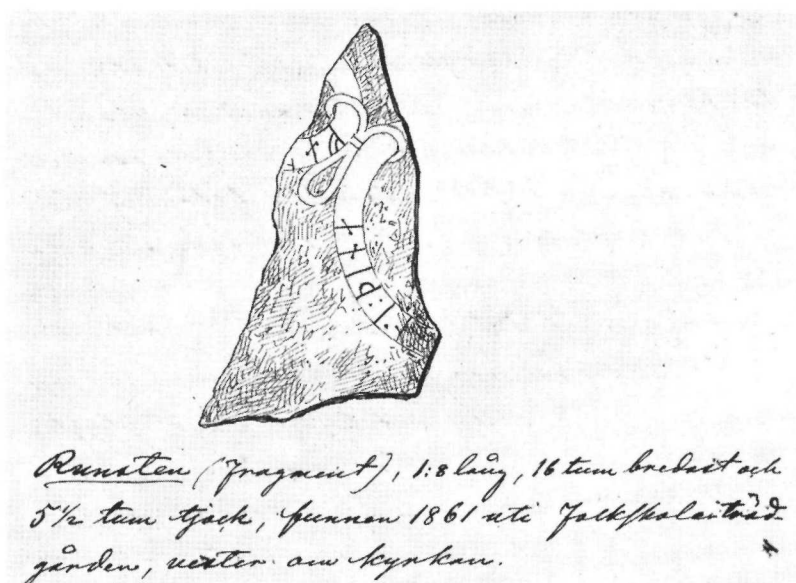 Runsten (fragment), 1:8 lång, 16 tum bredast och
5 1/2 tum tjock, funnen 1861 uti folkskoleträd-
gården, vester om kyrkan.